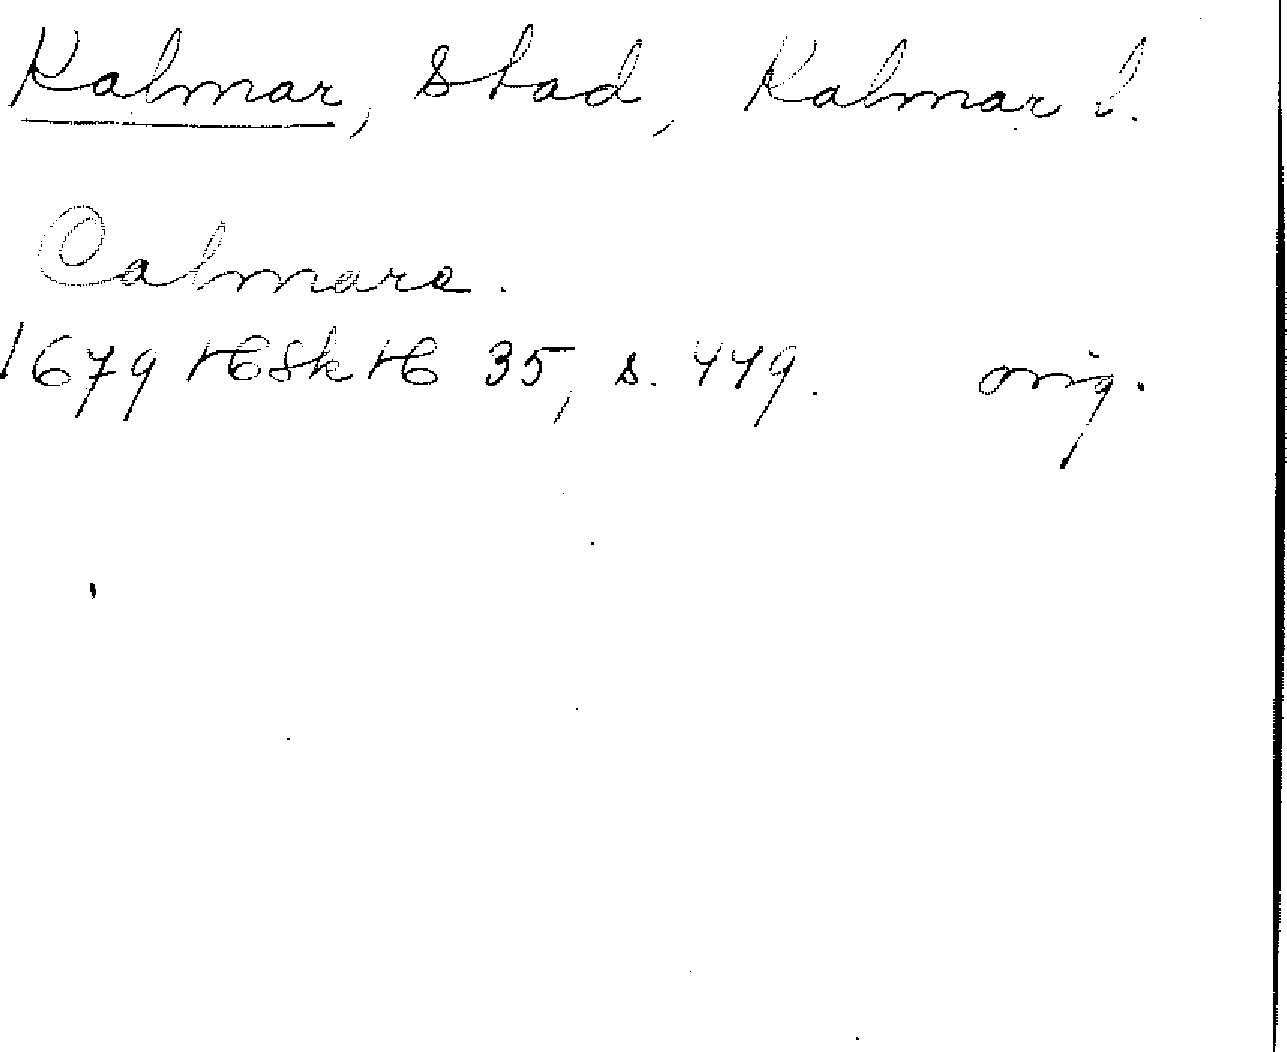 Kalmar, stad, Kalmar l.
Calmare.
1679 HSkH 35, s. 449. orig.